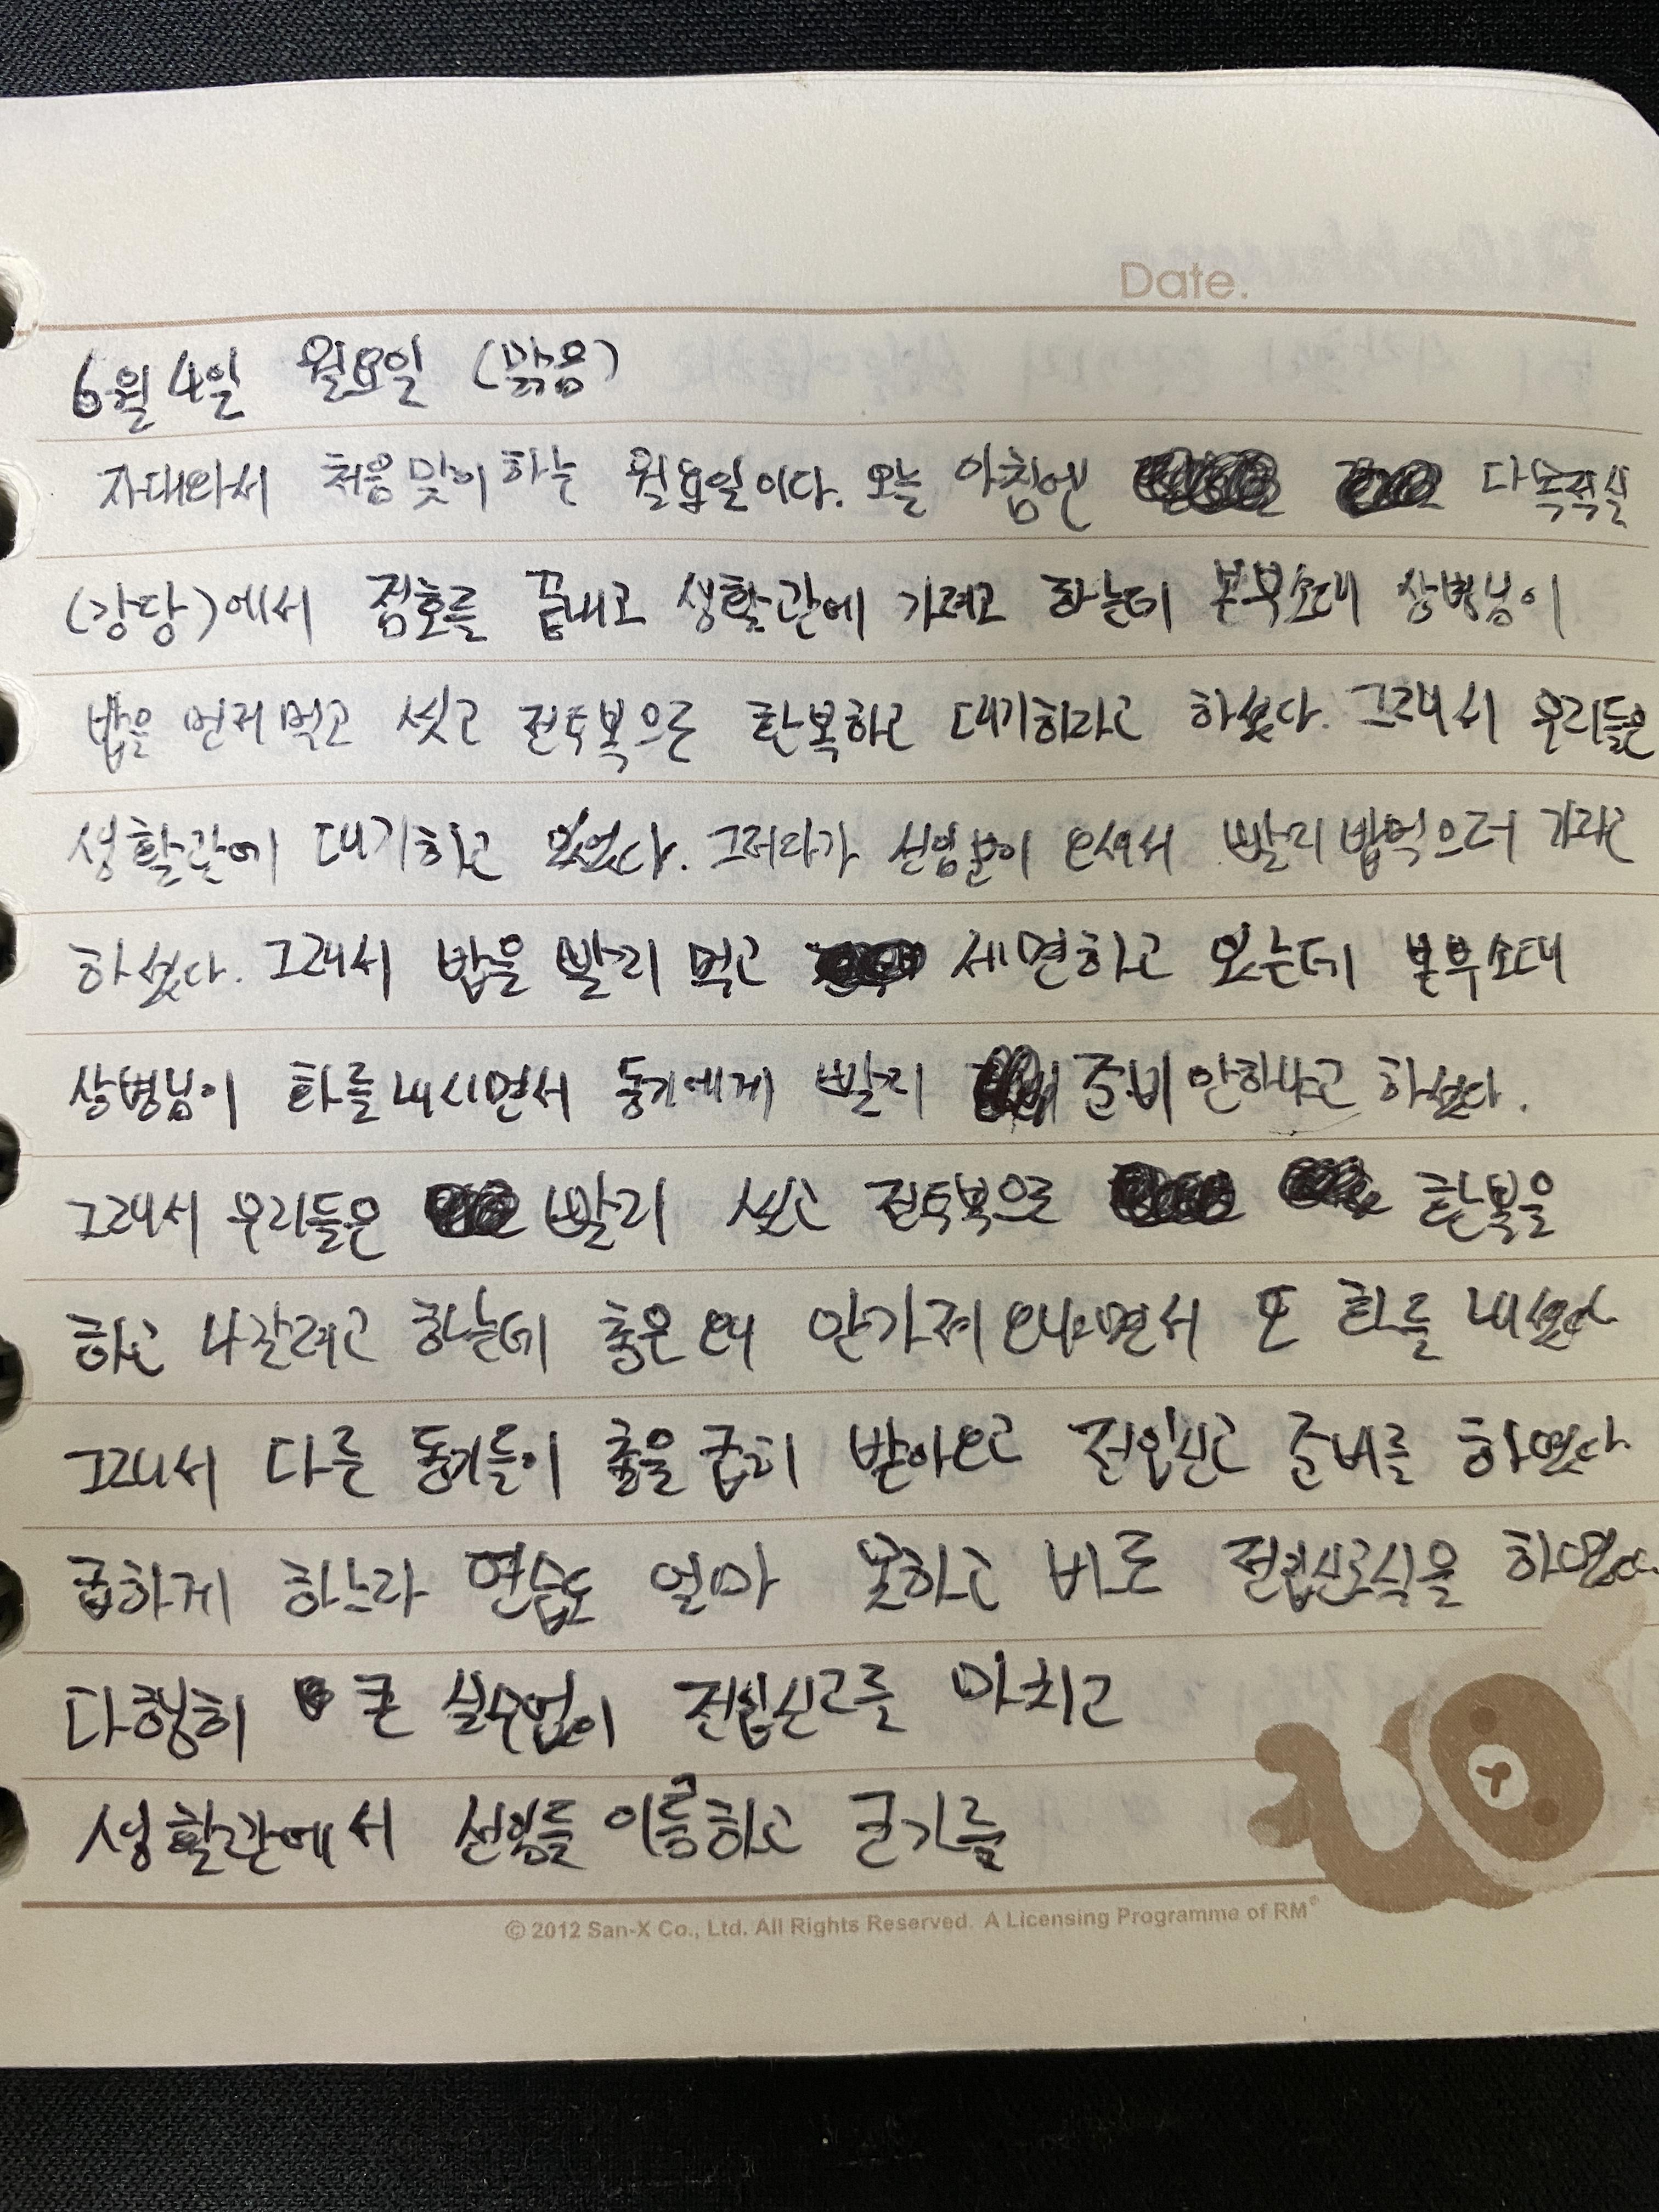 Date.
6월 4일 월요일 (맑음)
자대와서 처음 맞이 하는 월요일이다. 오늘 아침엔 다목적실
(강당)에서 점호를 끝내고 생활관에 가려고 하는데 본부소대 상병님이
밥을 먼저 먹고 씻고 전투복으로 환복하고 대기하라고 하셨다. 그래서 우리들은
생활관에 대기하고 있었다. 그러다가 선임분이 오셔서 빨리 밥먹으러 가라고
하셨다. 그래서 밥을 빨리 먹고 세면하고 있는데 본부소대
상병님이 화를 내시면서 동기에게 빨리 준비 안하냐고 하셨다.
그래서 우리들은 빨리 씻고 전투복으로 환복을
하고 나갈려고 하는데 총은 왜 안가져 오냐면서 또 화를 내셨다
그래서 다른 동기들이 총을 급히 받아오고 전입신고 준비를 하였다
급하게 하느라 연습도 얼마 못하고 바로 전입신고식을 하였다.
다행히 큰 실수없이 전입신고를 마치고
생활관에서 선임들 이름하고 군가를
© 2012 San-X Co., Ltd. All Rights Reserved. A Licensing Programme of RM®